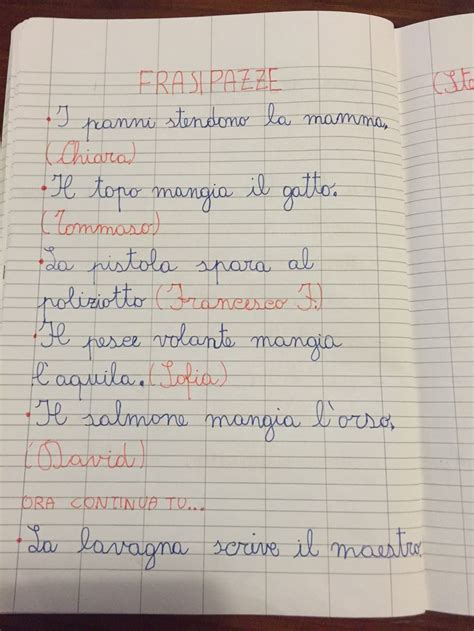 FRASI PAZZE
• I panni stendono la mamma.
(Chiara)
• Il topo mangia il gatto.
(Tommaso)
• La pistola spara al
poliziotto (Francesco F.)
• Il pesce volante mangia
l'aquila. (Sofia)
• Il salmone mangia l'orso.
(David)
ORA CONTINUA TU...
• La lavagna scrive il maestro.